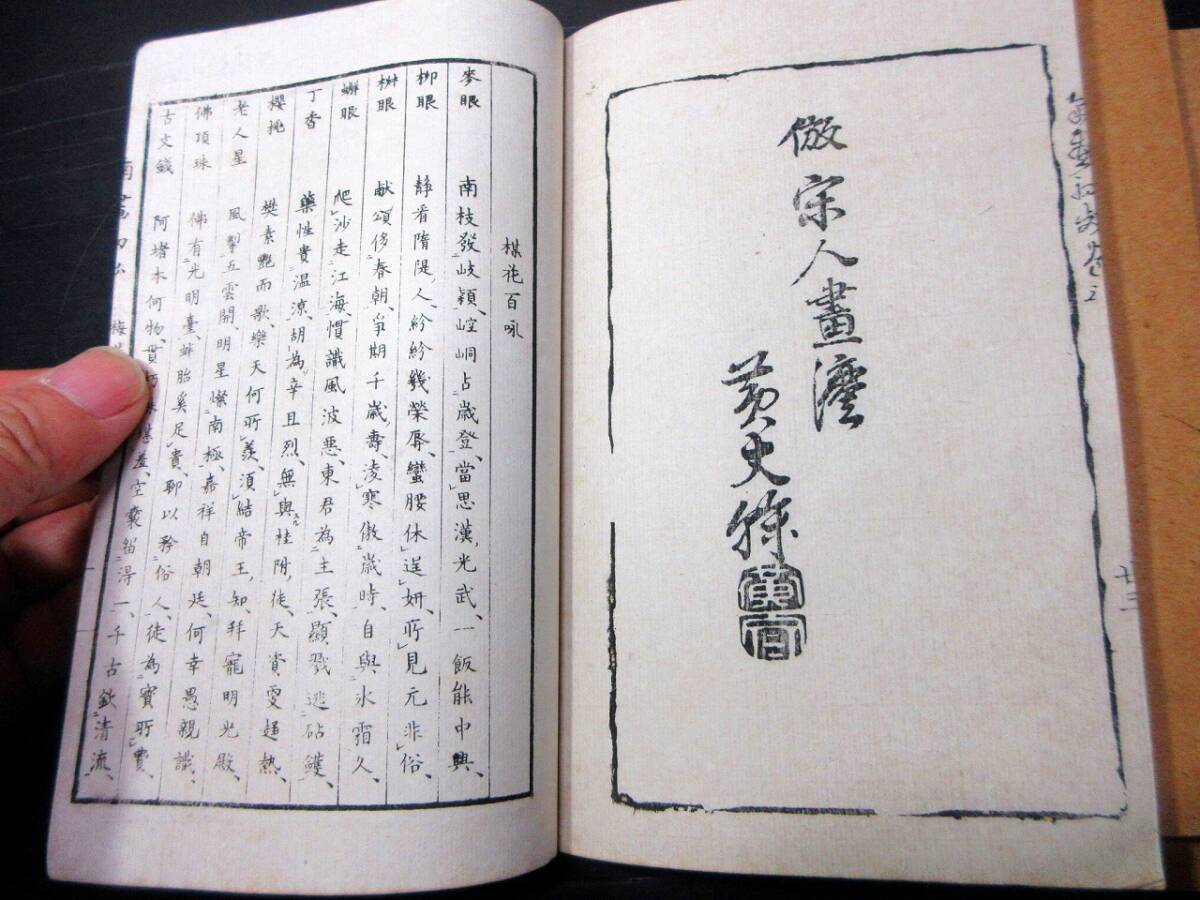 倣宋人畫灋
黄大
楳花百咏
麥眼 南枝發岐穎、崆峒占歲登、當思漢光武、一飯能中興、
柳眼 静看隋隄人、紛紛幾榮辱、蠻腰休逞妍、所見元非俗、
椒眼 献頌侈春朝、爭期千歲壽、凌寒傲歲時、自與氷霜久、
蠏眼 爬沙走江海、慣識風波惡、東君為主張、顯戮逃砧鑊、
丁香 藥性貴温涼、胡為辛且烈、無與桂附徒、天資趨熱、
櫻桃 樊素艷而歌、樂天何所羨、須結帝王知、拜寵明光殿、
老人星 風掣五雲開、明星燦南極、嘉祥自朝廷、何幸愚親識、
佛頂珠 佛有光明臺、蚌胎奚足貴、聊以矜俗人、徒為寶所費、
古文錢 阿堵本何物、貫堪羞、空囊留得一、千古欽清流、